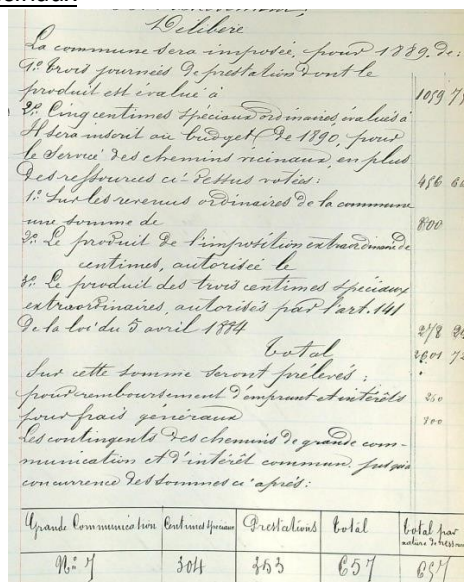 Délibère
La commune sera imposée, pour 1889. de:
1º trois journées de prestation dont le
produit est évalué à 1059 7
2º Cinq centimes spéciaux ordinaires, évalués à
Il sera inscrit au budget de 1890, pour
le Service des chemins vicinaux, en plus
des ressources ci-dessus votées: 456 6
1º Sur les revenus ordinaires de la commune
une somme de 800
2º Le produit de l'imposition extraordinaire de
centimes, autorisée le
3º Le produit des trois centimes spéciaux
extraordinaires, autorisés par l'art. 141
de la loi du 5 avril 1884 278 2
total 72
Sur cette somme seront prélevés:
pour remboursement d'emprunt et intérêts
pour frais généraux
Les contingents des chemins de grande com-
munication et d'intérêt commun. jusqu'à
concurrence des sommes ci-après:
Grande Communication Centimes Spéciaux Prestations total total par nature de
Nº 7 304 353 657 657